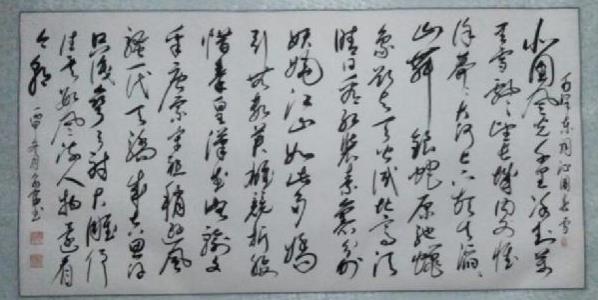 毛泽东词沁园春雪
北国风光千里冰封万
里雪飘望长城内外惟
馀莽莽大河上下顿失滔滔
山舞银蛇原驰蜡
象欲与天公试比高须
晴日看红装素裹分外
妖娆江山如此多娇
引无数英雄竞折腰
惜秦皇汉武略输文
采唐宗宋祖稍逊风
骚一代天骄成吉思汗
只识弯弓射大雕俱
往矣数风流人物还看
今朝